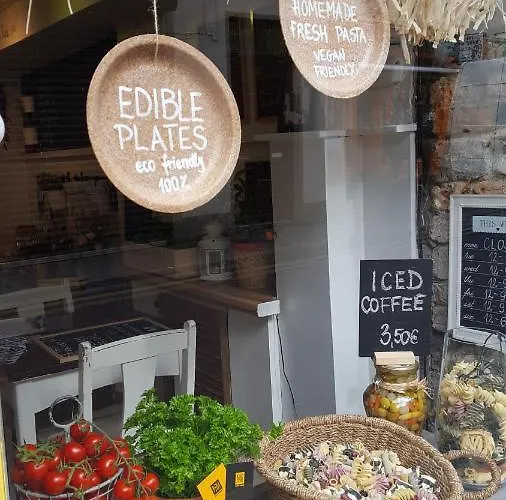 EDIBLE
PLATES
eco friendly
100%
HOMEMADE
FRESH PASTA
VEGAN
FRIENDLY
ICED
COFFEE
3,50€
THIS
mon
tue
wed
thu
fri
sat